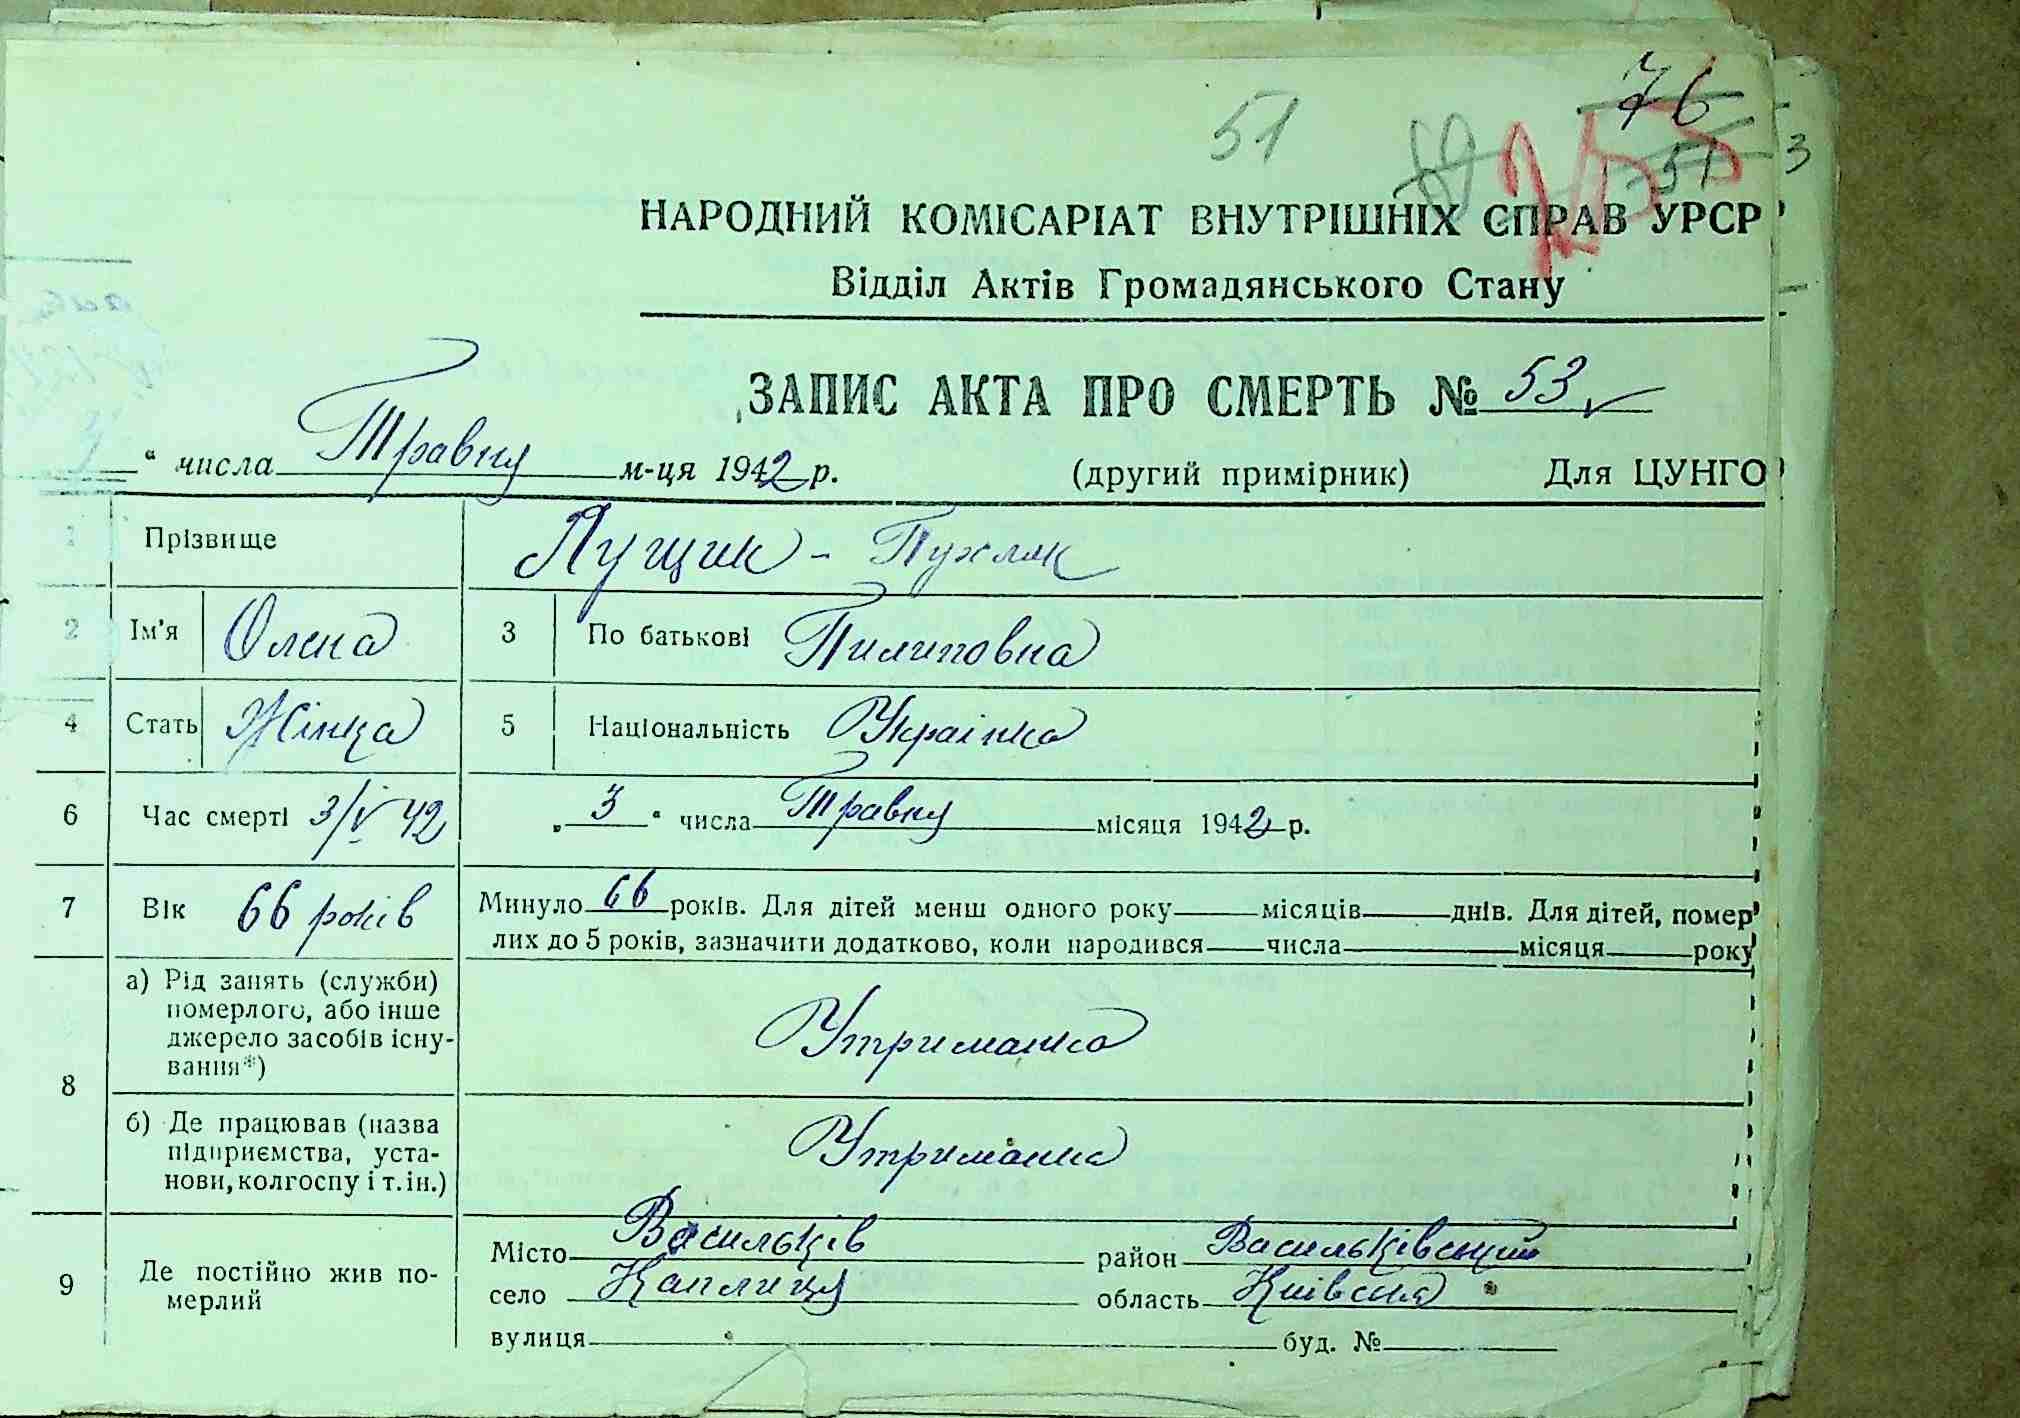 76
51
51
3
НАРОДНИЙ КОМІСАРІАТ ВНУТРІШНІХ СПРАВ УРСР
Відділ Актів Громадянського Стану
ЗАПИС АКТА ПРО СМЕРТЬ № 53
" числа Травня м-ця 1942 р. (другий примірник) Для ЦУНГО
1 Прізвище Лущик - Пухляк
2 Ім'я Олена 3 По батькові Пилиповна
4 Стать Жінка 5 Національність Украінка
6 Час смерті 3/V 42 „3" числа Травня місяця 1942 р.
7 Вік 66 років Минуло 66 років. Для дітей менш одного року місяців днів. Для дітей, помер
лих до 5 років, зазначити додатково, коли народився числа місяця року
8 а) Рід занять (служби)
померлого, або інше
джерело засобів існу-
вання*)
Утриманка
б) Де працював (назва
підприємства, уста-
нови, колгоспу і т. ін.)
Утриманка
9 Де постійно жив по-
мерлий
Місто Васильків район Васильківський
село Каплиця область Київська
вулиця буд. №